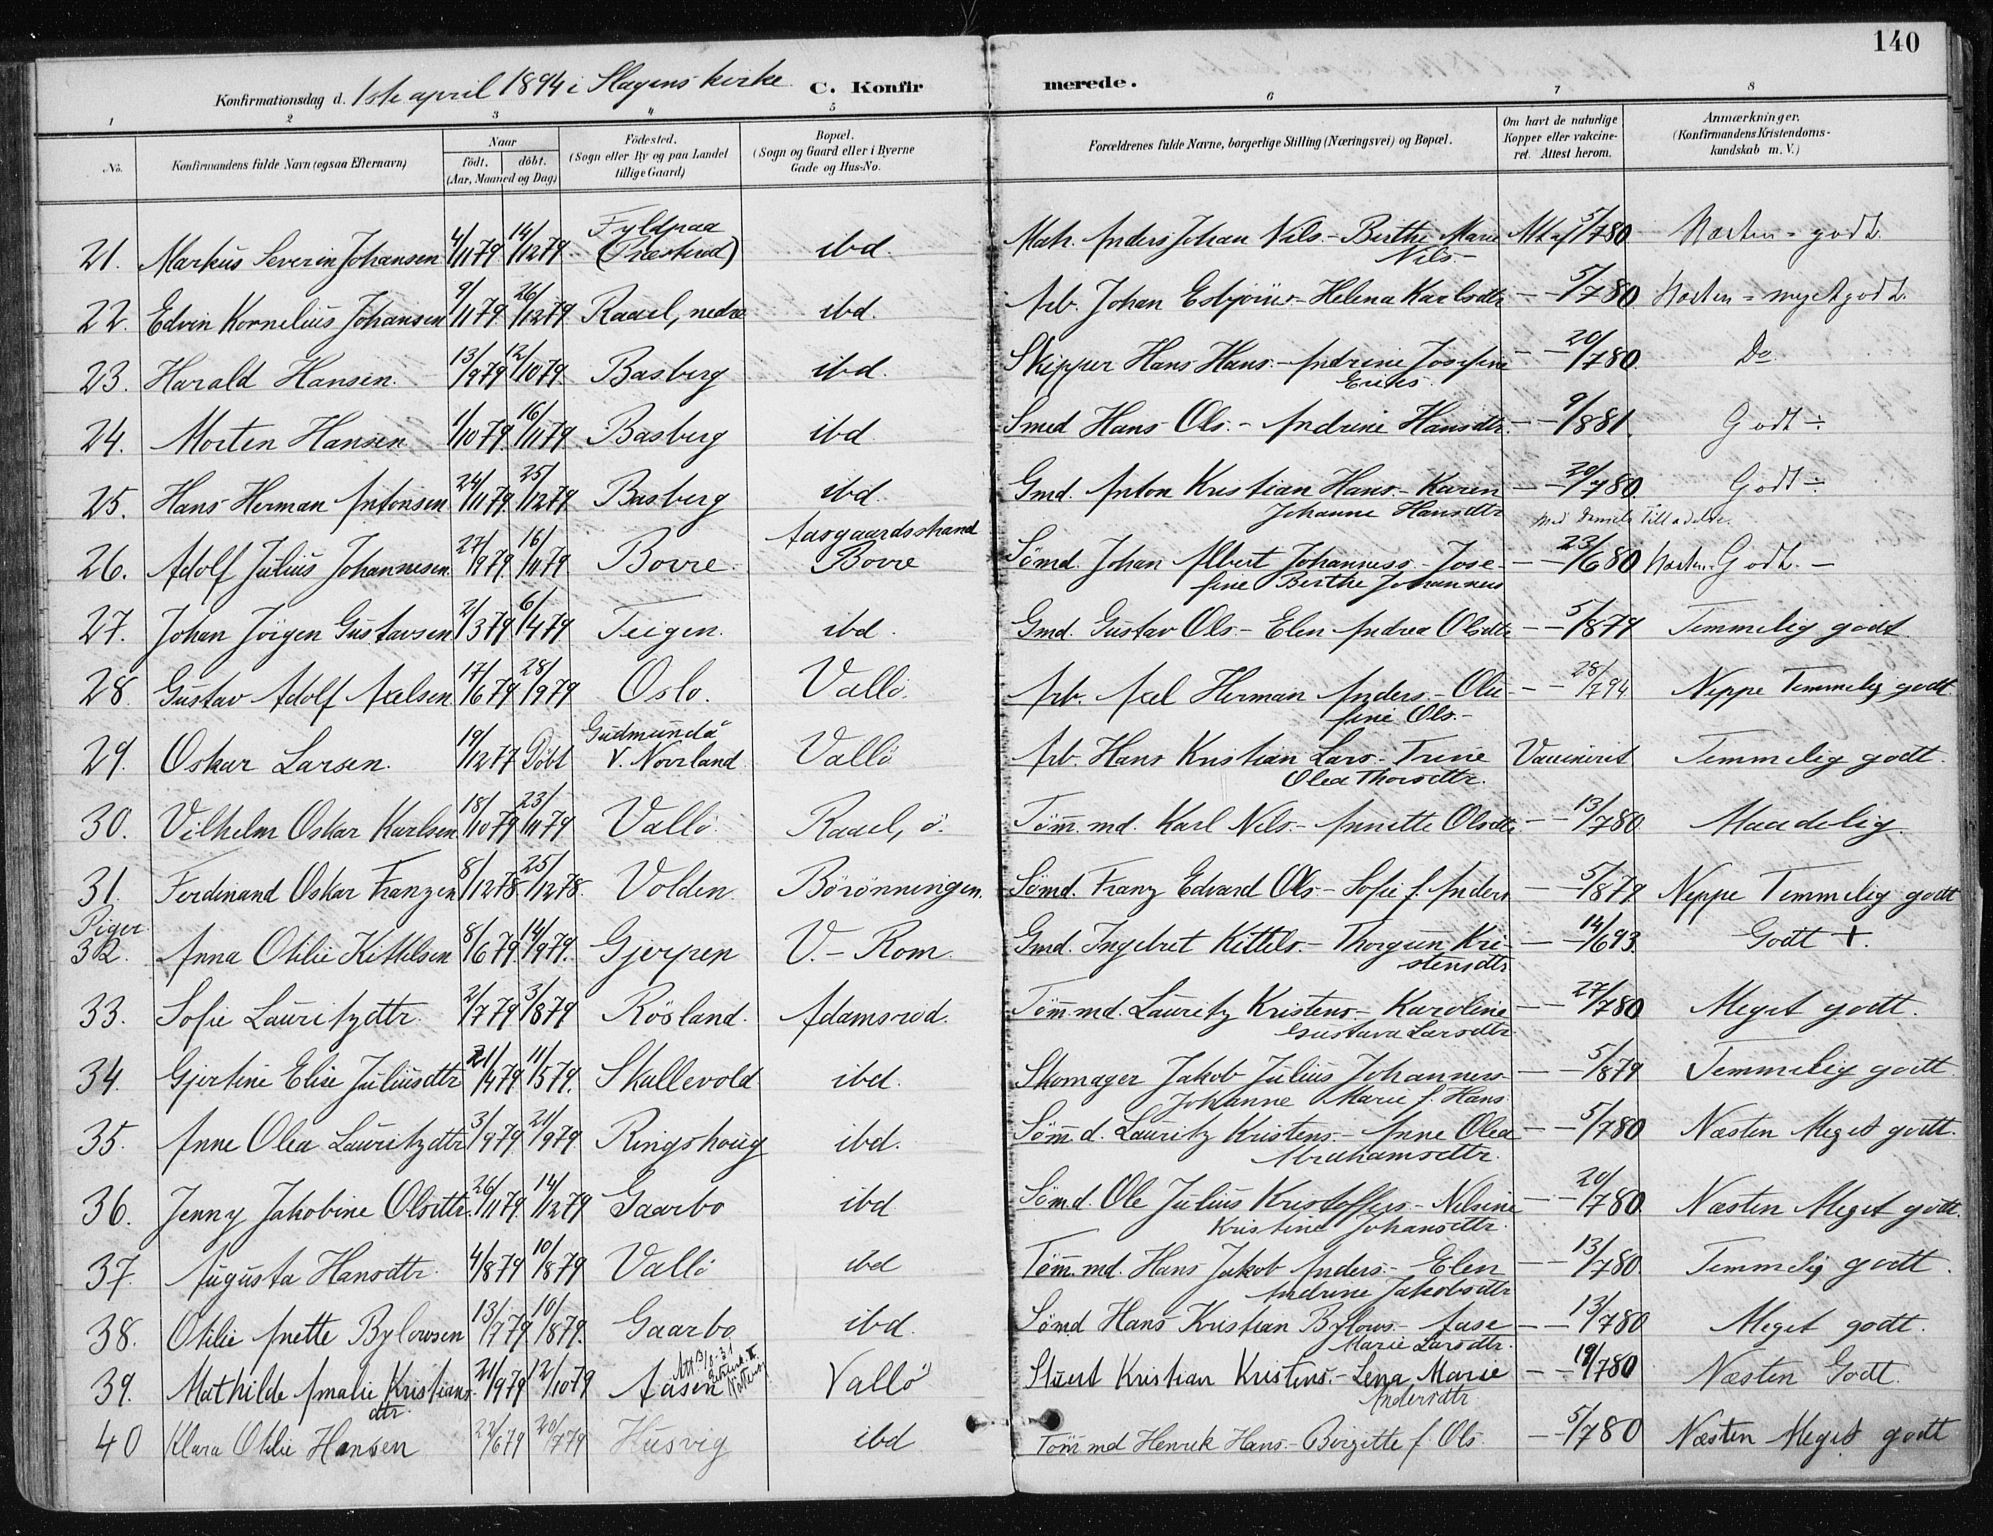 140
Konfirmationsdag d. 1ste april 1894 i Slagens kirke C. Konfirmerede.
1 2 3 4 5 6 7 8
No. Konfirmandens fulde Navn (ogsaa Efternavn) Naar født. døbt. (Aar, Maaned og Dag) Fødested. (Sogn eller By og paa Landet tillige Gaard) Bopæl. (Sogn og Gaard eller i Byerne Gade og Hus-No. Forældrenes fulde Navne, borgerlige Stilling (Næringsvei) og Bopæl. Om havt de naturlige Kopper eller vakcineret. Attest herom. Anmærkninger. (Konfirmandens Kristendomskundskab m. V.)
21. Markus Severin Johansen 4/11 79 14/12 79 Fyldpaa (Præsterød) ibd. Mat. Anders Johan Nils. - Berthe Marie Nils- Att af 5/7 80 Næsten - godt.
22. Edvin Kornelius Johansen 9/11 79 26/12 79 Raael, nedre ibd. Arb. Johan Esbjörns - Helena Karlsdtr - - 5/7 80 Næsten - meget godt.
23. Harald Hansen. 13/9 79 12/10 79 Basberg ibd. Skipper Hans Hans. - Andrine Josefine Eriks. - - 20/7 80 Do
24. Morten Hansen 1/10 79 16/11 79 Basberg ibd. Smed Hans Ols. - Andrine Hansdtr. - - 9/8 81. Godt ÷
25. Hans Herman Antonsen 24/11 79 25/12 79 Basberg ibd. Gmd. Anton Kristian Hans. - Karen Johanne Hansdtr - - 20/7 80 Godt ÷
26. Adolf Julius Johannesen 27/9 79 16/11 79 Bovre. Aasgaardsstrand Bovre Sømd. Johan Albert Johanness. - Josefine Berthe Johannes - - 23/6 80 Næsten Godt. -
27. Johan Jörgen Gustavsen 2/3 79 6/4 79 Teigen. ibd. Gmd. Gustav Ols. - Elen Andrea Olsdtr - - 5/8 79 Temmelig godt
28. Gustav Adolf Axelsen 17/6 79 28/9 79 Oslo. Vallö. Arb. Axel Herman Anders. - Olefine Ols. - - - 28/7 94 Neppe Temmelig godt.
29. Oskar Larsen. 19/12 77 Döbt Gudmundrå V. Norrland Vallö Arb. Hans Kristian Lars. - Trine Olea Thorsdtr. Vaccineret Temmelig godt.
30. Vilhelm Oskar Karlsen 18/10 79 23/11 79 Vallö. Raael, ö. Tömmd. Karl Nils. - Annette Olsdtr - - 13/7 80 Maadelig.
31. Ferdinand Oskar Franzen 8/12 78 25/12 78. Volden. Börönningen. Sømd. Franz Edvard Ols. - Sofie f. Anders - - 5/8 79 Neppe Temmelig godt
Piger
32. Anna Otilie Kittelsen 8/6 79 14/9 79. Gjerpen V. - Rom. Gmd. Ingebret Kittels. - Thorgun Kristensdtr - - 14/6 93 Godt +.
33. Sofie Lauritzdtr. 2/7 79 3/8 79 Rösland. Adamsröd. Tömmd. Lauritz Kristens. - Karoline Gustava Larsdtr. - - 27/7 80 Meget godt.
34. Gjertine Elise Juliusdtr 21/4 79 11/5 79. Skallevold ibd. Skomager Jakob Julius Johanness Johanne Marie f. Hans - - 5/8 79 Temmelig godt.
35. Anne Olea Lauritzdtr 3/9 79 21/9 79. Ringshoug ibd. Sömd. Lauritz Kristens. - Anne Olea Abrahamsdtr. - - 5/7 80 Næsten Meget godt.
36. Jenny Jakobine Olsdtr. 26/11 79 14/12 79 Gaarbo ibd Sömd. Ole Julius Kristoffers. - Nilsine Kristine Johansdtr. - - 20/7 80 Næsten Meget godt.
37. Augusta Hansdtr. 4/8 79 10/8 79 Vallö ibd Tömmd. Hans Jakob Anders. - Elen Andrine Jakobsdtr - - 13/7 80. Temmelig godt.
38. Otilie Anette Bylowsen 13/7 79 10/8 79. Gaarbo ibd Sömd Hans Kristian Bylows. - Aase Marie Larsdtr. - - 13/7 80 Meget godt.
39. Mathilde Amalie Kristiansdtr. 21/9 79 12/10 79 Aasen Vallö Stuert Kristian Kristens. - Lena Marie Andersdtr - - 19/7 80 Næsten Godt.
40 Klara Otilie Hansen 22/6 79 20/7 79 Husvig ibd Tömmd Henrik Hans. - Birgitte f. Ols. - - 5/7 80 Næsten Meget godt